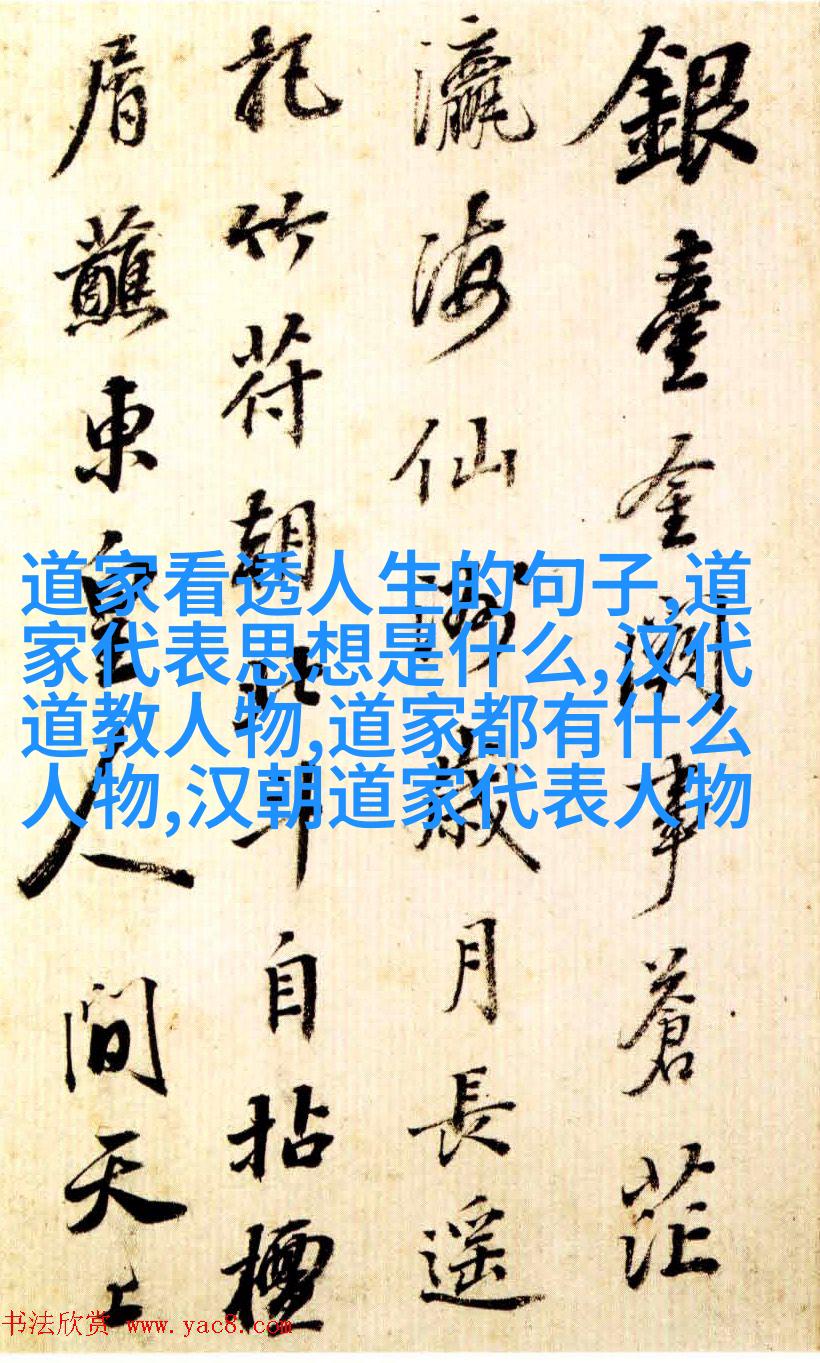 銀臺金闕事蒼茫
瀛海仙游歲月長遥
記竹苻朝北斗自拈檀
屑蘸東皇人間天上
道家看透人生的句子,道
家代表思想是什么,汉代
道教人物,道家都有什么
人物,汉朝道家代表人物
书法欣赏 www.yac8.com